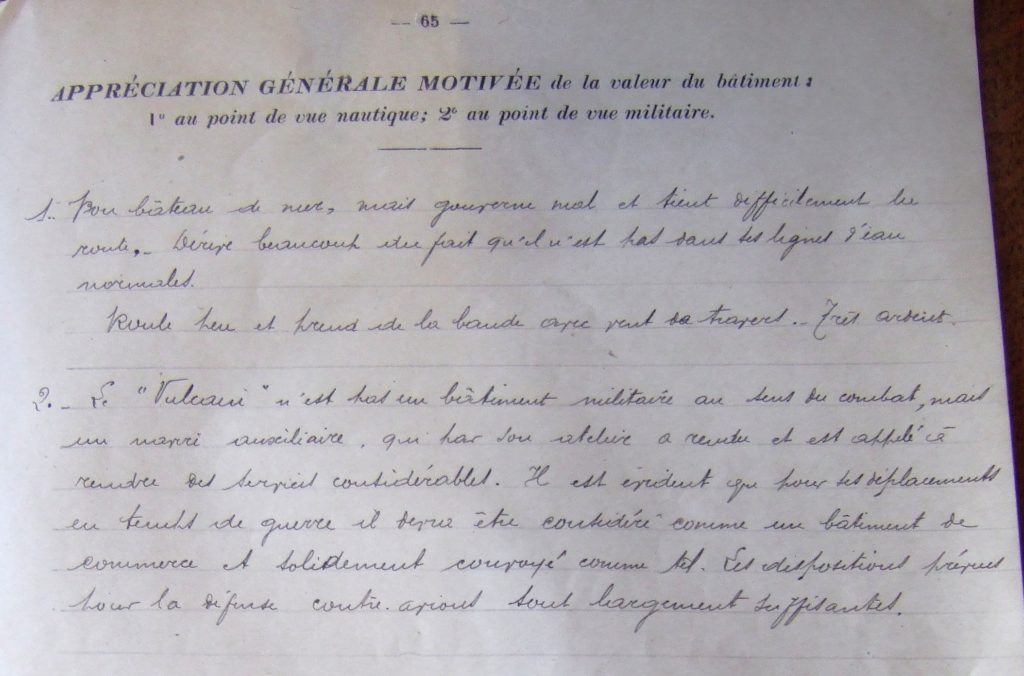 — 65 —
APPRÉCIATION GÉNÉRALE MOTIVÉE de la valeur du bâtiment :
1º au point de vue nautique; 2º au point de vue militaire.
1.. Bon bâteau de mer, mais gouverne mal et tient difficilement la
route.- Dérive beaucoup du fait qu'il n'est pas dans ses lignes d'eau
normales.
Roule peu et prend de la bande avec vent de travers.- Très ardent.
2.- Le "Vulcain" n'est pas un bâtiment militaire au sens du combat, mais
un navire auxiliaire, qui par son atelier a rendu et est appelé à
rendre des services considérables. Il est évident que pour ses déplacements
en temps de guerre il devra être considéré comme un bâtiment de
commerce et solidement convoyé comme tel. Les dispositions prévues
pour la défense contre-avions sont largement suffisantes.